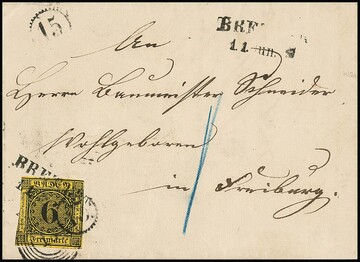 15
An
BRE
11
Herrn Baumeister Schneider
Wohlgeboren
in Freiburg.
BRE
BADEN
6
Freimarke